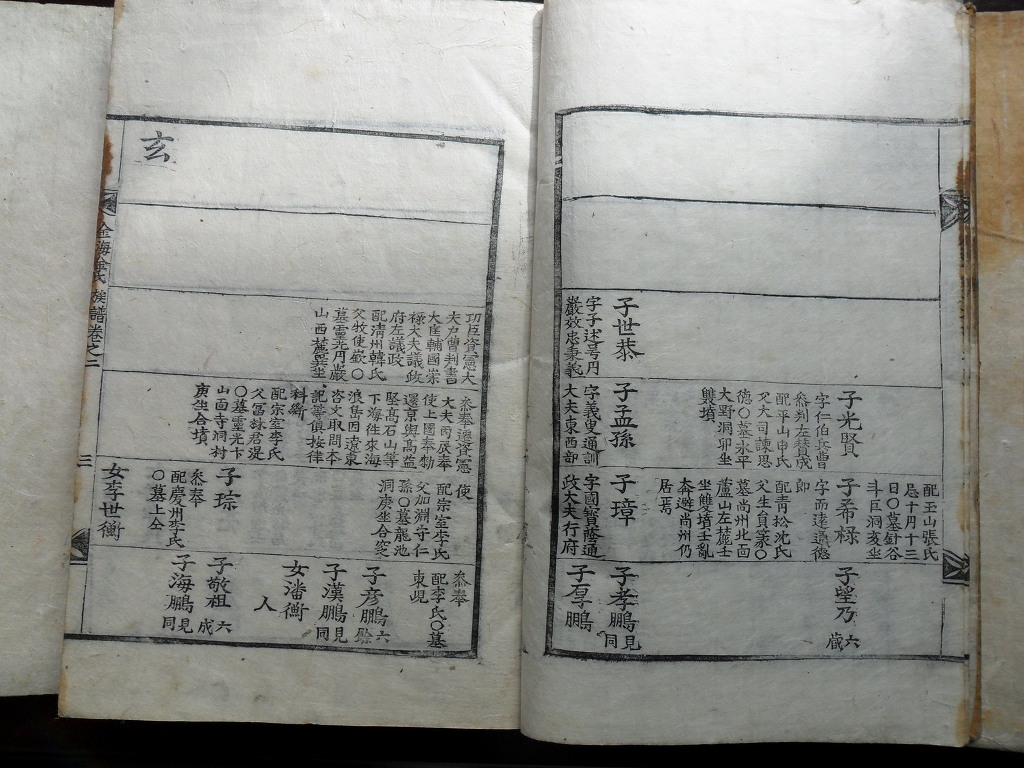 配玉山張氏
忌十月十三
日○墓針谷
斗巨洞亥坐
子光賢
字仁伯兵曹
叅判左贊成
配平山申氏
父大司諫思
德○墓永平
大野洞卯坐
雙墳
子希祿
字而遠通德
郞
配靑松沈氏
父生員荣○
墓尚州北面
蘆山左麓壬
坐雙墳壬亂
奔避尚州仍
居焉
子望乃
六歲
子世恭
字子述号月
巖效忠秉義
子孟孫
字義叟通訓
大夫東西部
子璋
字國寶蔭通
政大夫行府
子孝鵬
見同
子厚鵬
功臣資憲大
夫戶曹判書
大匡輔國崇
祿大夫議政
府左議政
配淸州韓氏
父牧使嶔○
墓靈光月巖
山西麓巽坐
叅奉遷資憲
大夫丙辰奉
使上國奉勅
還京與高益
堅高石山等
下海往來海
浪島因遠東
咨文取問本
記等償按律
科斷
配宗室李氏
父冨詠君湜
○墓靈光卞
山面寺洞村
庚坐合墳
使
配宗室李氏
父加淵守仁
孫○墓龍池
洞庚坐合窆
子琮
叅奉
配慶州李氏
○墓上仝
女李世衡
叅奉
配李氏○墓
東峴
子彥鵬
六
子漢鵬
見同
女潘衡
人
子敬祖
六
成
子海鵬
見同
玄
金海金氏族譜卷之一
三